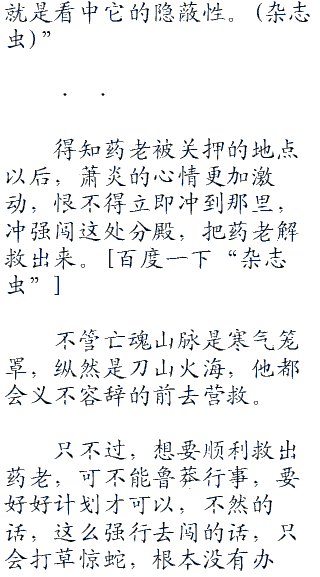 就是看中它的隐蔽性。(杂志
虫)”
． ．
得知药老被关押的地点
以后，萧炎的心情更加激
动，恨不得立即冲到那里，
冲强闯这处分殿，把药老解
救出来。[百度一下“杂志
虫”]
不管亡魂山脉是寒气笼
罩，纵然是刀山火海，他都
会义不容辞的前去营救。
只不过，想要顺利救出
药老，可不能鲁莽行事，要
好好计划才可以，不然的
话，这么强行去闯的话，只
会打草惊蛇，根本没有办